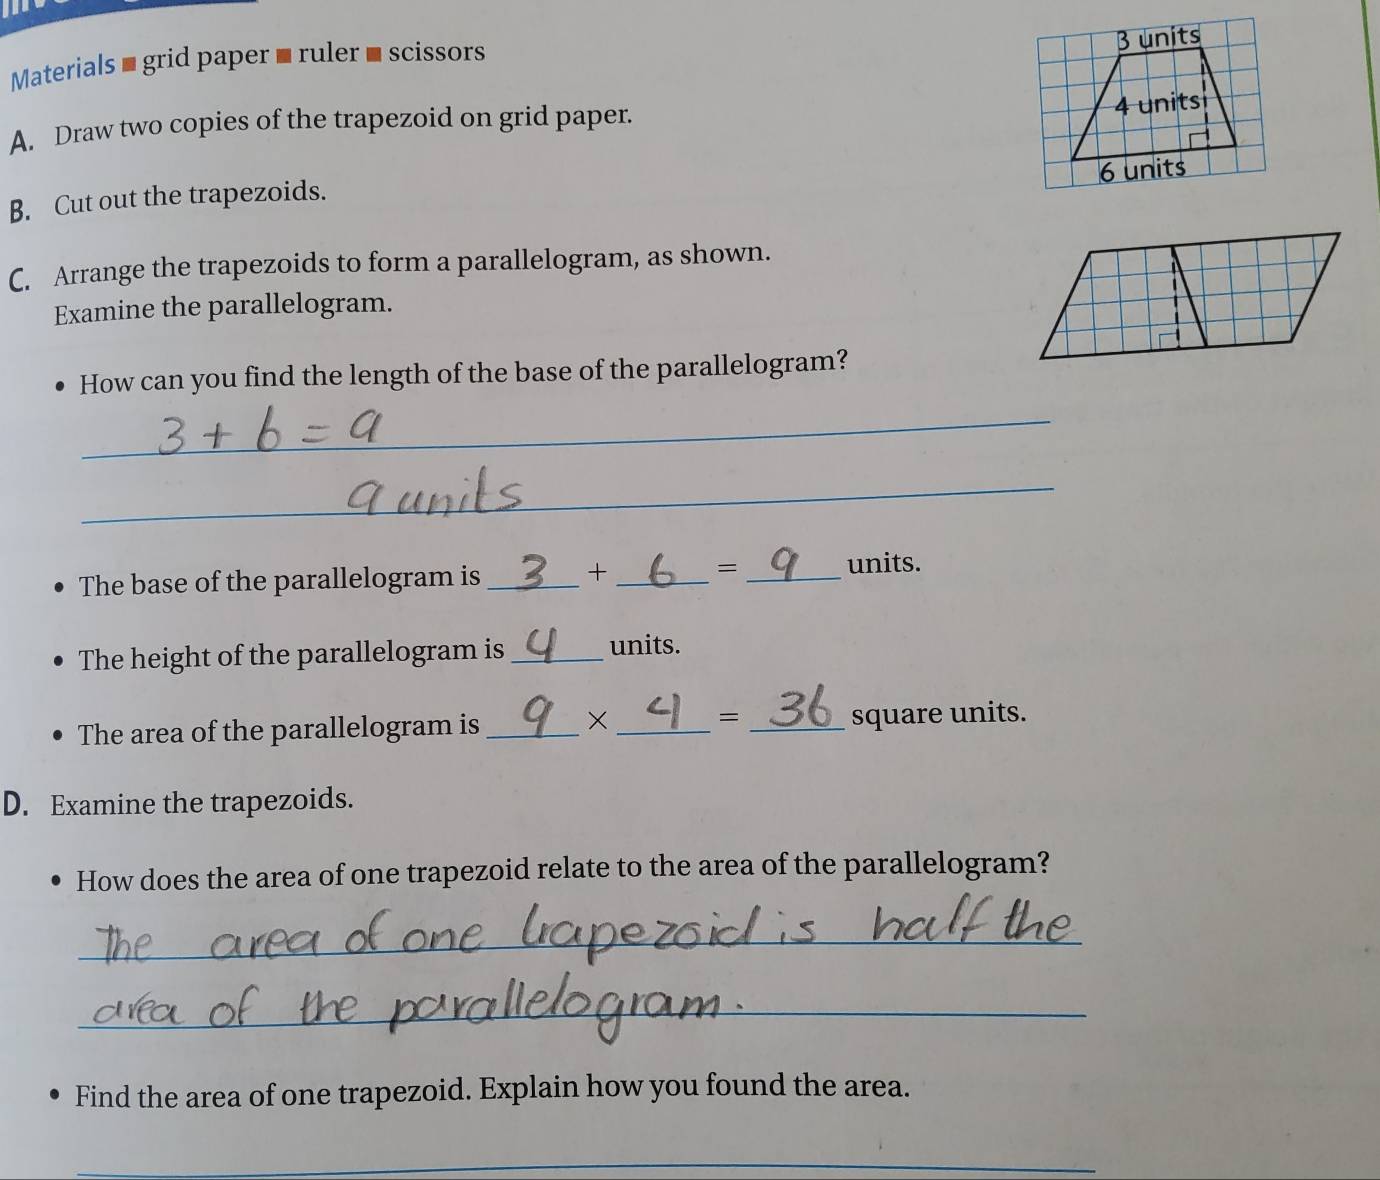 Materials ■ grid paper ■ ruler ■ scissors
3 units
4 units
6 units
A. Draw two copies of the trapezoid on grid paper.
B. Cut out the trapezoids.
C. Arrange the trapezoids to form a parallelogram, as shown.
Examine the parallelogram.
• How can you find the length of the base of the parallelogram?
3 + 6 = 9
9 units
• The base of the parallelogram is 3 + 6 = 9 units.
• The height of the parallelogram is 4 units.
• The area of the parallelogram is 9 × 4 = 36 square units.
D. Examine the trapezoids.
• How does the area of one trapezoid relate to the area of the parallelogram?
The area of one trapezoid is half the
area of the parallelogram.
• Find the area of one trapezoid. Explain how you found the area.